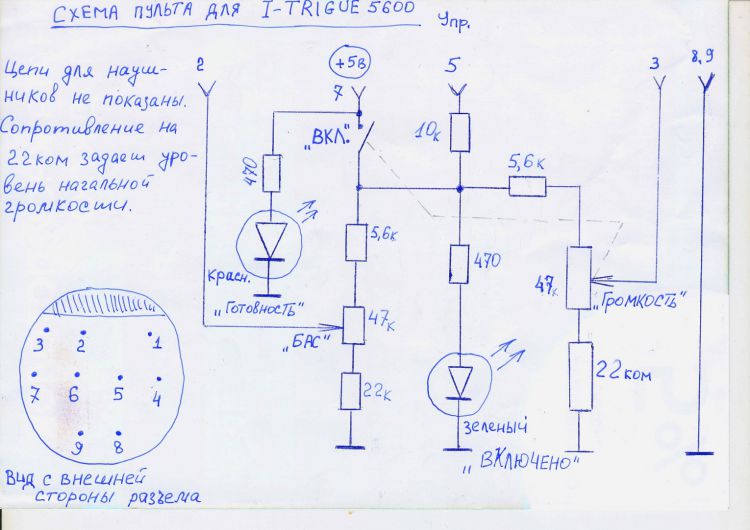 СХЕМА ПУЛЬТА ДЛЯ I-TRIGUE 5600
Упр.
Цепи для науш-
ников не показаны.
Сопротивление на
22ком задаёт уро-
вень начальной
громкости.
2
+5в
7
5
3
8,9
"ВКЛ."
10к
470
5,6к
5,6к
красн.
"ГОТОВНОСТЬ"
470
47к
"ГРОМКОСТЬ"
47к
"БАС"
22к
22ком
зеленый
"ВКЛЮЧЕНО"
3 2 1
7 6 5 4
9 8
Вид с внешней
стороны разъема